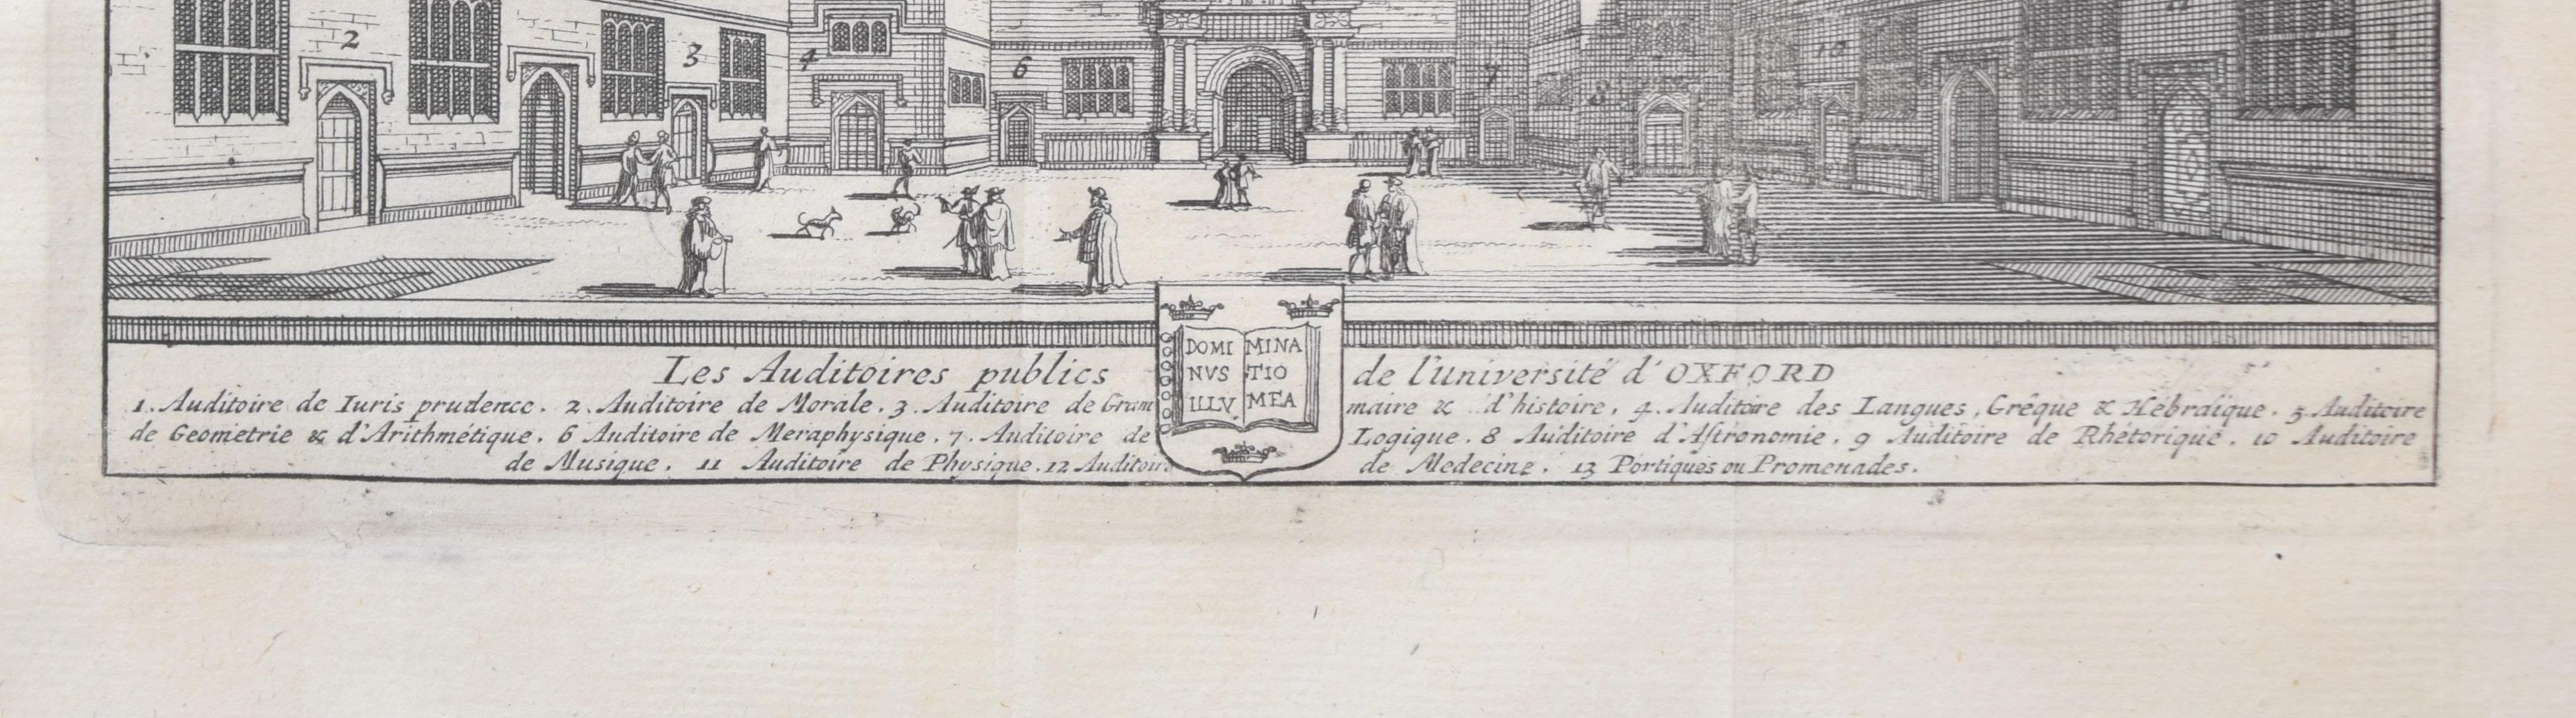 2
3
4
6
7
8
10
11
DOMI MINA
NVS TIO
ILLV MEA
Les Auditoires publics de l'Université d'OXFORD
1. Auditoire de Iuris prudence. 2. Auditoire de Morale. 3. Auditoire de Gram maire & d'histoire, 4. Auditoire des Langues, Grêque & Hébraïque. 5. Auditoire
de Geometrie & d'Arithmétique. 6 Auditoire de Meraphysique. 7. Auditoire de Logique. 8 Auditoire d'Astronomie. 9 Auditoire de Rhétorique. 10 Auditoire
de Musique. 11 Auditoire de Physique. 12 Auditoir. de Medecine. 13 Portiques ou Promenades.